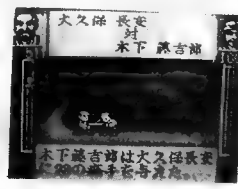 大久保 長安
対
木下 藤吉郎
木下藤吉郎は大久保長安
に28の